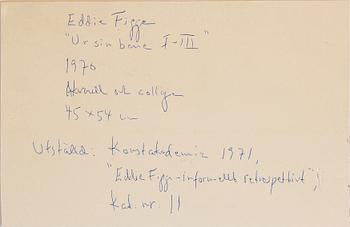 Eddie Figge
"Ur sin bana I-III"
1970
och collage
45 x 54 cm
Utställd: Konstakademin 1971,
"Eddie Figge - informellt retrospektivt",
Kat. nr. 11